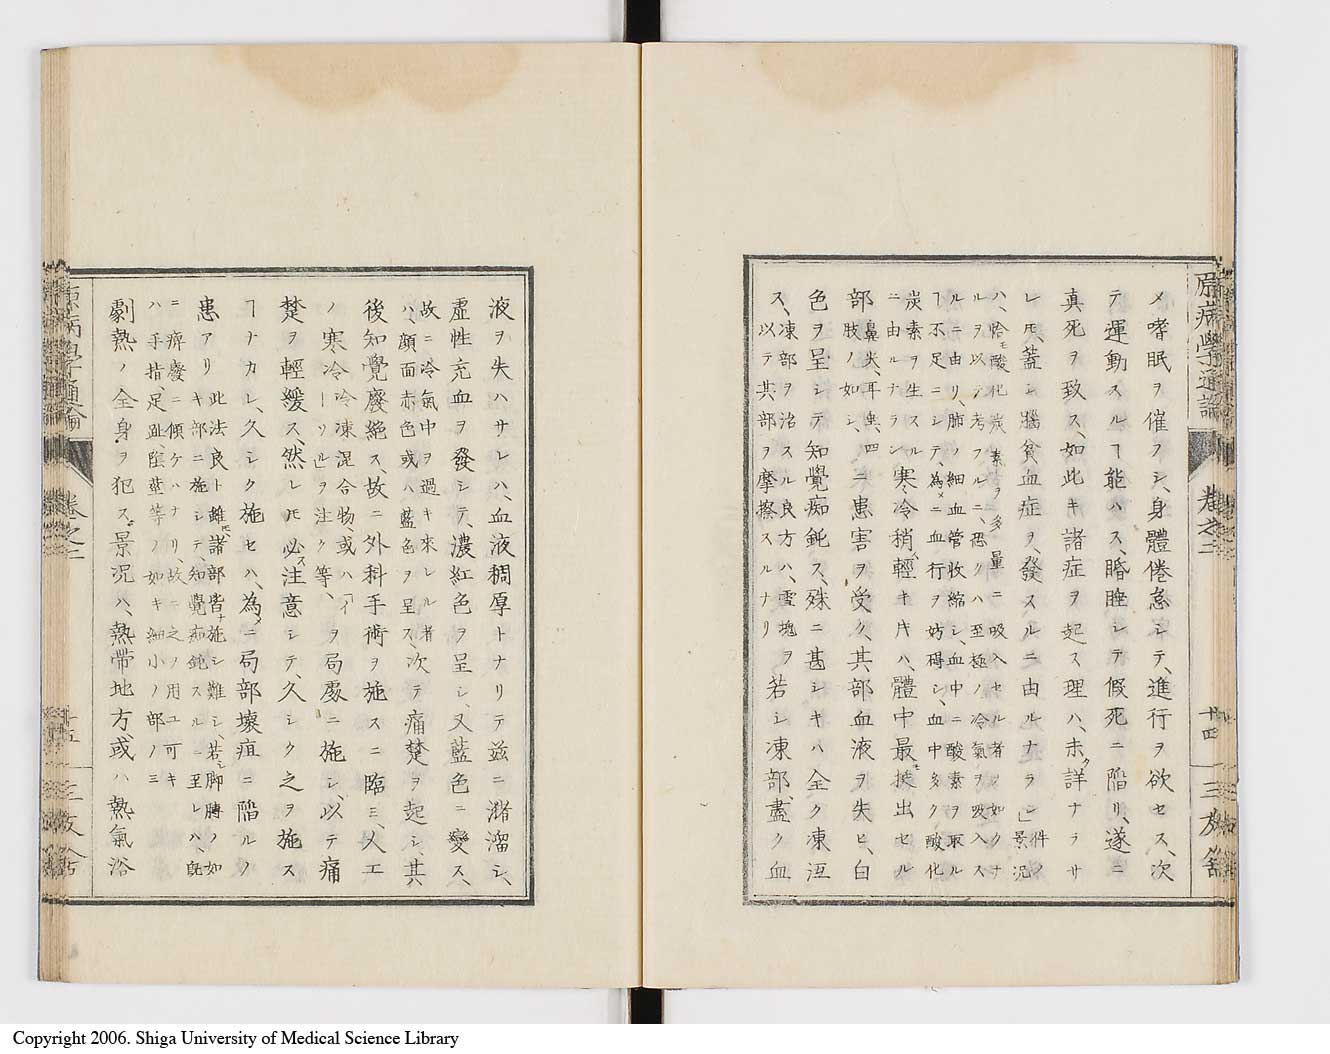 原病學通論
卷之二
十四
三友舎
メ嗜眠ヲ催フシ、身體倦怠シテ、進行ヲ欲セス、次
テ運動スルヿ能ハス、昏睡シテ假死ニ陷リ、遂ニ
真死ヲ致ス、如此キ諸症ヲ起ス理ハ、未タ詳ナラサ
レ𪜈、蓋シ腦貧血症ヲ、發スルニ由ルナラン」件ノ景況
ハ、恰モ酸化炭素ヲ多量ニ吸入セル者ノ如クナ
ルヲ以テ考フルニ、恐クハ至極ノ冷氣ヲ吸入ス
ルニ由リ、肺ノ細血管收縮シ、血中ニ酸素ヲ取ル
ヿ不足ニシテ、為メニ血行ヲ妨碍シ、血中多ク酸化
炭素ヲ生スル
ニ由ルナラン
寒冷稍輕キ𪜈ハ、體中最モ挺出セル
部
鼻尖、耳輿、四
肢ノ如シ、
ニ患害ヲ受ク、其部血液ヲ失ヒ、白
色ヲ呈シテ知覺痴鈍ス、殊ニ甚シキハ全ク凍冱
ス、
凍部ヲ治スル良方ハ、雪塊ヲ
以テ其部ヲ摩擦スルナリ
若シ凍部、盡ク血
液ヲ失ハサレハ、血液稠厚トナリテ茲ニ瀦溜シ、
虚性充血ヲ發シテ、濃紅色ヲ呈シ、又藍色ニ變ス、
故ニ冷氣中ヲ過キ來レル者
ハ、顔面赤色或ハ藍色ヲ呈ス、
次テ痛楚ヲ起シ、其
後知覺廢絶ス、故ニ外科手術ヲ施スニ臨ミ、人工
ノ寒冷
冷凍混合物、或ハ「イ
ーソル」ヲ注ク等、
ヲ局處ニ施シ、以テ痛
楚ヲ輕緩ス、然レ𪜈必ス注意シテ、久シク之ヲ施ス
ヿナカレ、久シク施セハ、為メニ局部壞疽ニ陷ルノ
患アリ
此法良ト雖𪜈諸部皆ナ施シ難シ、若シ脚膊ノ如
キ部ニ施シテ、知覺痴鈍スルニ至レハ、既
ニ痺廢ニ傾ケハナリ故ニ之ヲ用ユ可キ
ハ手指、足趾陰莖等ノ如キ細小ノ部ノミ
劇熱ノ全身ヲ犯ス景況ハ、熱帶地方或ハ熱氣浴
原病學通論
卷之二
十五
三友舎
Copyright 2006. Shiga University of Medical Science Library